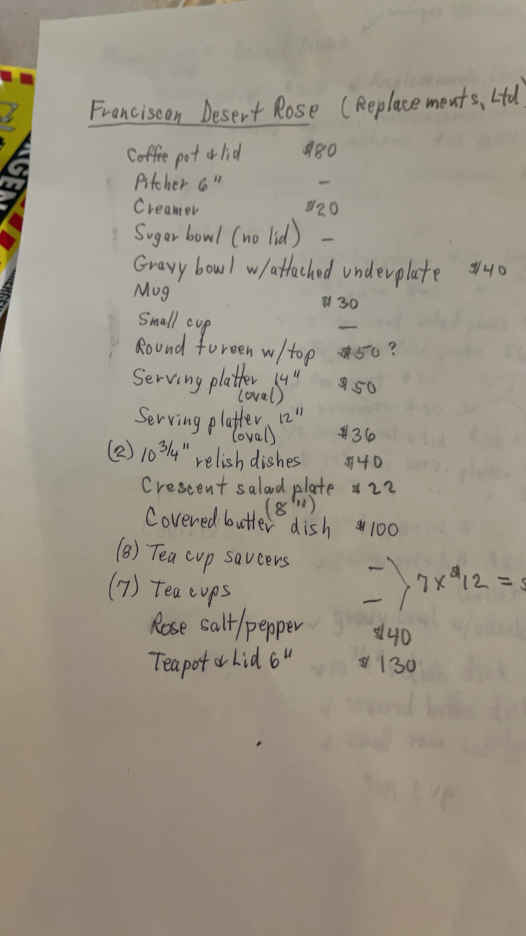 Franciscan Desert Rose (Replacements, Ltd
Coffee pot & lid $80
Pitcher 6" –
Creamer $20
Sugar bowl (no lid) –
Gravy bowl w/attached underplate $40
Mug $30
Small cup –
Round tureen w/top $50?
Serving platter 14" $50
(oval)
Serving platter 12"
(oval) $36
(2) 10 3/4" relish dishes $40
Crescent salad plate $22
(8")
Covered butter dish $100
(8) Tea cup saucers –
7 x $12 =
(7) Tea cups –
Rose salt/pepper $40
Teapot & Lid 6" $130